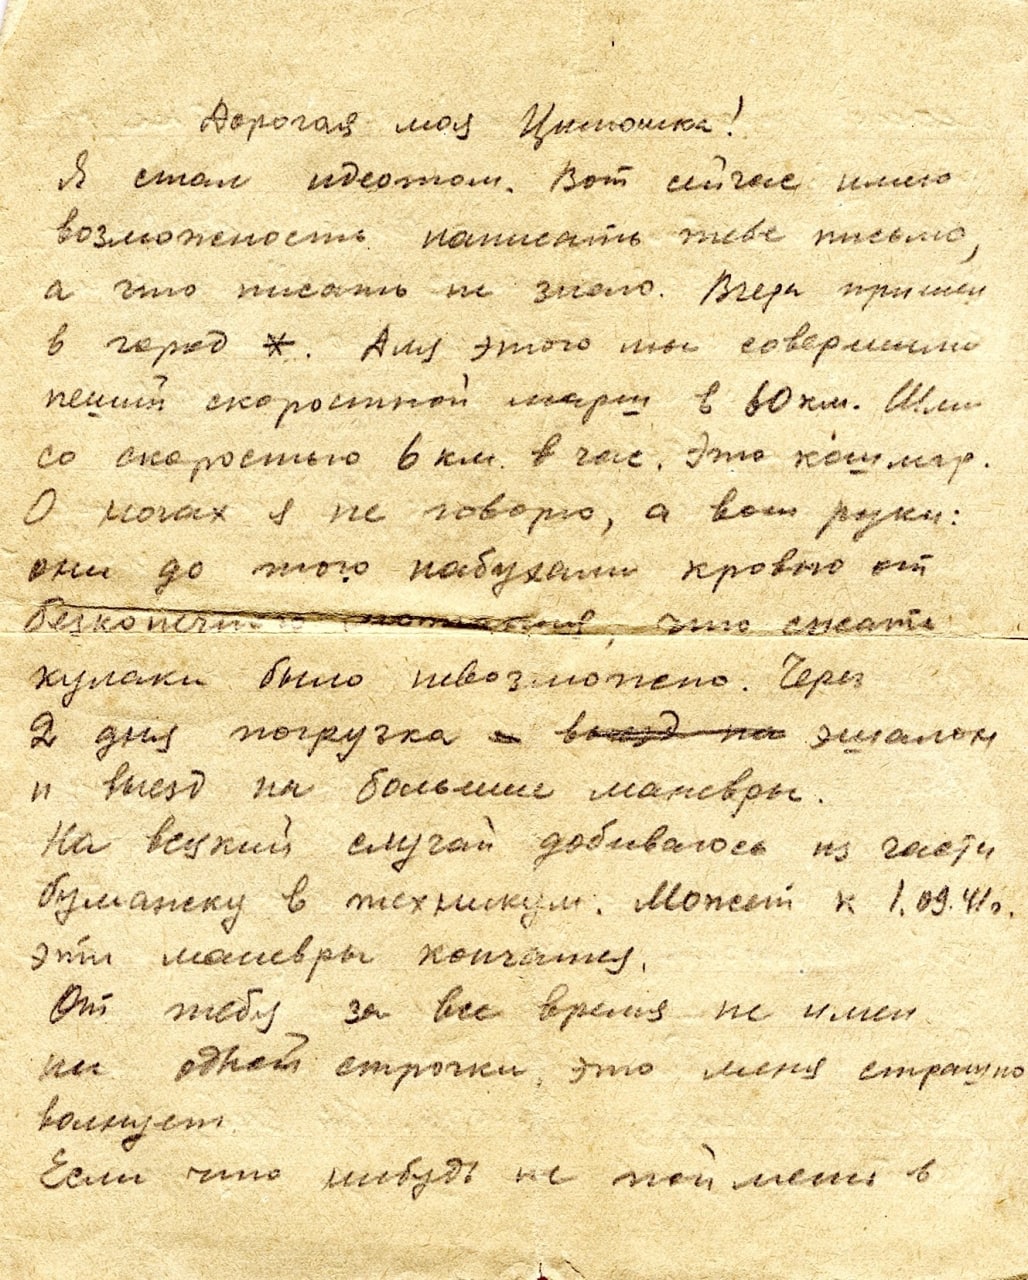 Дорогая моя Цилюшка!
Я стал идеотом. Вот сейчас имею
возможность написать тебе письмо,
а что писать не знаю. Вчера пришли
в город *. Для этого мы совершили
пеший скоростной марш в 60 км. Шли
со скоростью 6 км. в час. Это кошмар.
О ногах я не говорю, а вот руки:
они до того набухали кровью от
безконечного, что сжать
кулаки было невозможно. Через
2 дня погрузка выезд на эшалон
и выезд на большие маневры.
На всякий случай добиваюсь из части
бумажку в техникум. Может к 1.09.41г.
эти маневры кончатся.
От тебя за все время не имел
ни одной строчки, это меня страшно
волнует.
Если что нибудь не поймешь в